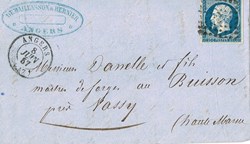 & BERNIER
ANGERS
ANGERS
8
JUIN
57
Monsieur Danelle et fils
maitre de forges au Buisson
près Vassy
(haute Marne